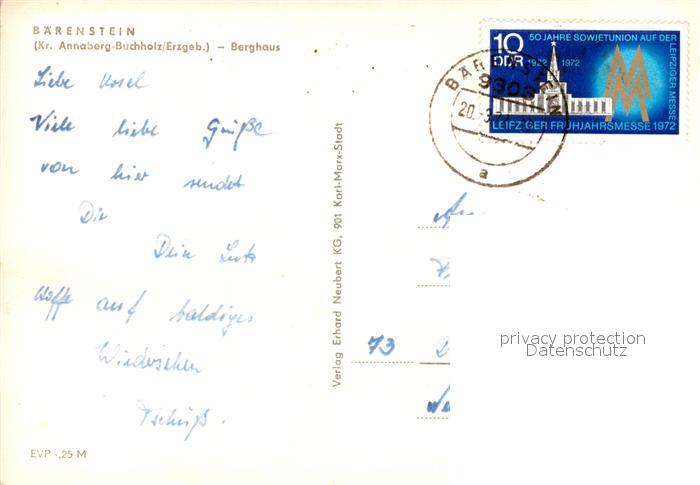 BÄRENSTEIN
(Kr. Annaberg-Buchholz/Erzgeb.) – Berghaus
Liebe
Viele liebe Grüße
von hier sendet
Dir
Dein Lutz
Hoffe auf baldiges
Wiedersehen
Tschüß.
EVP -,25 M
Verlag Erhard Neubert KG, 901 Karl-Marx-Stadt
10
DDR
50 JAHRE SOWJETUNION AUF DER
LEIPZIGER MESSE
1922 1972
LEIPZIGER FRÜHJAHRSMESSE 1972
BÄRENSTEIN
9303
20.
a
An
73 D
privacy protection
Datenschutz